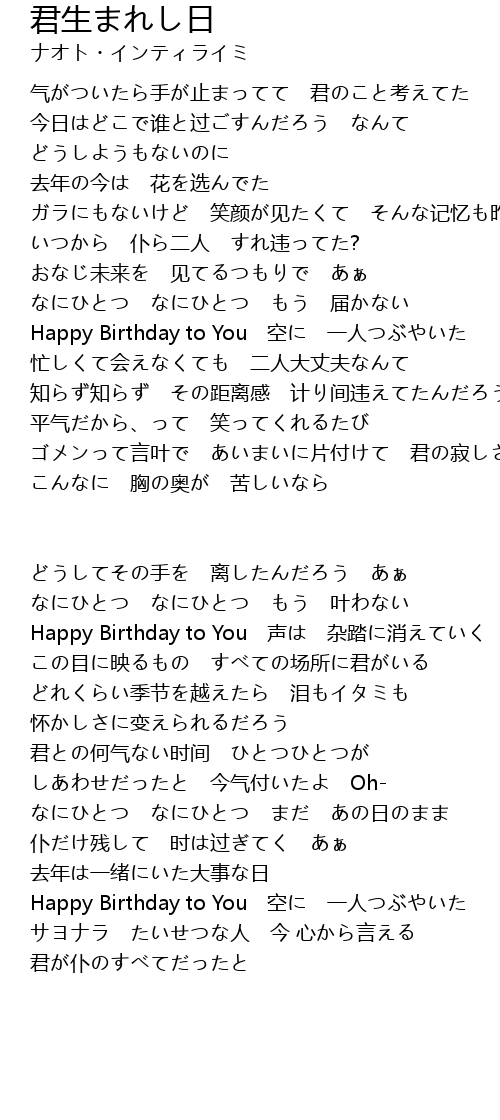 君生まれし日
ナオト・インティライミ
气がついたら手が止まってて　君のこと考えてた
今日はどこで谁と过ごすんだろう　なんて
どうしようもないのに
去年の今は　花を选んでた
ガラにもないけど　笑颜が见たくて　そんな记忆も
いつから　仆ら二人　すれ违ってた?
おなじ未来を　见てるつもりで　あぁ
なにひとつ　なにひとつ　もう　届かない
Happy Birthday to You　空に　一人つぶやいた
忙しくて会えなくても　二人大丈夫なんて
知らず知らず　その距离感　计り间违えてたんだろう
平气だから、って　笑ってくれるたび
ゴメンって言叶で　あいまいに片付けて　君の寂しさ
こんなに　胸の奥が　苦しいなら
どうしてその手を　离したんだろう　あぁ
なにひとつ　なにひとつ　もう　叶わない
Happy Birthday to You　声は　杂踏に消えていく
この目に映るもの　すべての场所に君がいる
どれくらい季节を越えたら　泪もイタミも
怀かしさに变えられるだろう
君との何气ない时间　ひとつひとつが
しあわせだったと　今气付いたよ　Oh-
なにひとつ　なにひとつ　まだ　あの日のまま
仆だけ残して　时は过ぎてく　あぁ
去年は一绪にいた大事な日
Happy Birthday to You　空に　一人つぶやいた
サヨナラ　たいせつな人　今 心から言える
君が仆のすべてだったと